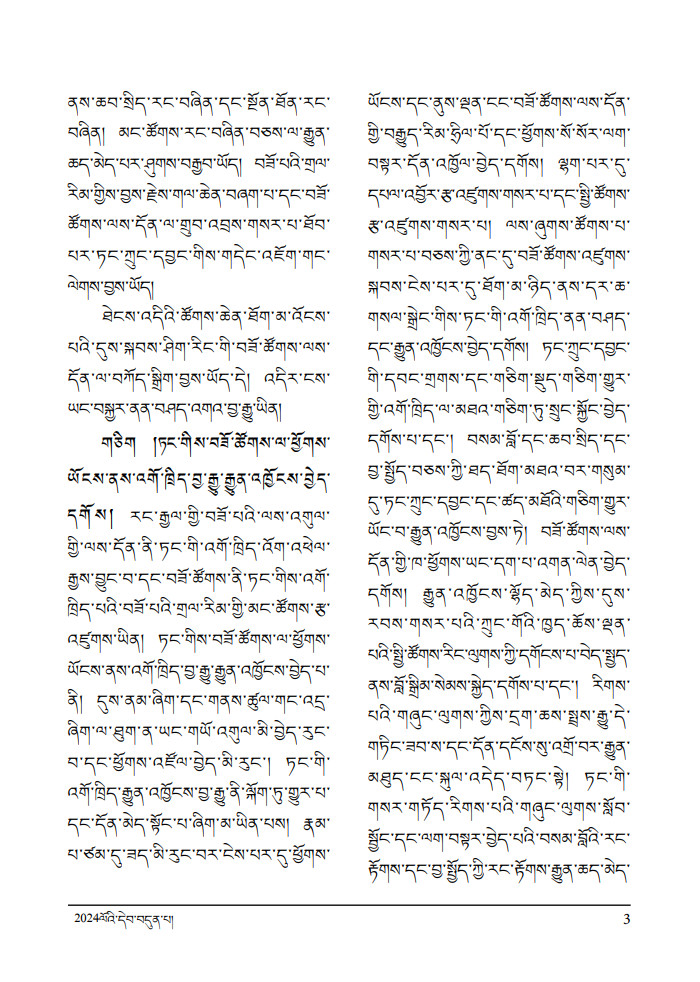 ནས་ཆབ་སྲིད་རང་བཞིན་དང་སྔོན་ཐོན་རང་
བཞིན། མང་ཚོགས་རང་བཞིན་བཅས་ལ་རྒྱུན་
ཆད་མེད་པར་ཤུགས་བརྒྱབ་ཡོད། བཟོ་པའི་གྲལ་
རིམ་གྱིས་བྱས་རྗེས་གལ་ཆེན་བཞག་པ་དང་བཟོ་
ཚོགས་ལས་དོན་ལ་གྲུབ་འབྲས་གསར་པ་ཐོབ་
པར་ཏང་ཀྲུང་དབྱང་གིས་གདེང་འཇོག་གང་
ལེགས་བྱས་ཡོད།
ཐེངས་འདིའི་ཚོགས་ཆེན་ཐོག་མ་འོངས་
པའི་དུས་སྐབས་ཤིག་རིང་གི་བཟོ་ཚོགས་ལས་
དོན་ལ་བཀོད་སྒྲིག་བྱས་ཡོད་དེ། འདིར་ངས་
ཡང་བསྐྱར་ནན་བཤད་འགའ་བྱ་རྒྱུ་ཡིན།
གཅིག །ཏང་གིས་བཟོ་ཚོགས་ལ་ཕྱོགས་
ཡོངས་ནས་འགོ་ཁྲིད་བྱ་རྒྱུ་རྒྱུན་འཁྱོངས་བྱེད་
དགོས། རང་རྒྱལ་གྱི་བཟོ་པའི་ལས་འགུལ་
གྱི་ལས་དོན་ནི་ཏང་གི་འགོ་ཁྲིད་འོག་འཕེལ་
རྒྱས་བྱུང་བ་དང་བཟོ་ཚོགས་ནི་ཏང་གིས་འགོ་
ཁྲིད་པའི་བཟོ་པའི་གྲལ་རིམ་གྱི་མང་ཚོགས་རྩ་
འཛུགས་ཡིན། ཏང་གིས་བཟོ་ཚོགས་ལ་ཕྱོགས་
ཡོངས་ནས་འགོ་ཁྲིད་བྱ་རྒྱུ་རྒྱུན་འཁྱོངས་བྱེད་པ་
ནི། དུས་ནམ་ཞིག་དང་གནས་ཚུལ་གང་འདྲ་
ཞིག་ལ་ཐུག་ན་ཡང་གཡོ་འགུལ་མི་བྱེད་རུང་
བ་དང་ཕྱོགས་འཛོལ་བྱེད་མི་རུང་། ཏང་གི་
འགོ་ཁྲིད་རྒྱུན་འཁྱོངས་བྱ་རྒྱུ་ནི་ལྐོག་ཏུ་གྱུར་པ་
དང་དོན་མེད་སྟོང་པ་ཞིག་མ་ཡིན་པས། རྣམ་
པ་ཙམ་དུ་ཟད་མི་རུང་བར་ངེས་པར་དུ་ཕྱོགས་
ཡོངས་དང་ནུས་ལྡན་ངང་བཟོ་ཚོགས་ལས་དོན་
གྱི་བརྒྱུད་རིམ་ཧྲིལ་པོ་དང་ཕྱོགས་སོ་སོར་ལག་
བསྟར་དོན་འཁྱོལ་བྱེད་དགོས། ལྷག་པར་དུ་
དཔལ་འབྱོར་རྩ་འཛུགས་གསར་པ་དང་སྤྱི་ཚོགས་
རྩ་འཛུགས་གསར་པ། ལས་ཞུགས་ཚོགས་པ་
གསར་པ་བཅས་ཀྱི་ནང་དུ་བཟོ་ཚོགས་འཛུགས་
སྐབས་ངེས་པར་དུ་ཐོག་མ་ཉིད་ནས་དར་ཆ་
གསལ་སྒྲེང་གིས་ཏང་གི་འགོ་ཁྲིད་ནན་བཤད་
དང་རྒྱུན་འཁྱོངས་བྱེད་དགོས། ཏང་ཀྲུང་དབྱང་
གི་དབང་གྲགས་དང་གཅིག་སྡུད་གཅིག་གྱུར་
གྱི་འགོ་ཁྲིད་ལ་མཐའ་གཅིག་ཏུ་སྲུང་སྐྱོང་བྱེད་
དགོས་པ་དང་། བསམ་བློ་དང་ཆབ་སྲིད་དང་
བྱ་སྤྱོད་བཅས་ཀྱི་ཐད་ཐོག་མཐའ་བར་གསུམ་
དུ་ཏང་ཀྲུང་དབྱང་དང་ཚད་མཐོའི་གཅིག་གྱུར་
ཡོང་བ་རྒྱུན་འཁྱོངས་བྱས་ཏེ། བཟོ་ཚོགས་ལས་
དོན་གྱི་ཁ་ཕྱོགས་ཡང་དག་པ་འགན་ལེན་བྱེད་
དགོས། རྒྱུན་འཁྱོངས་ལྷོད་མེད་ཀྱིས་དུས་
རབས་གསར་པའི་ཀྲུང་གོའི་ཁྱད་ཆོས་ལྡན་
པའི་སྤྱི་ཚོགས་རིང་ལུགས་ཀྱི་དགོངས་པ་བེད་སྤྱད་
ནས་བློ་སྒྲིམ་སེམས་སྐྱེད་དགོས་པ་དང་། རིགས་
པའི་གཞུང་ལུགས་ཀྱིས་དྲག་ཆས་སྤྲས་རྒྱུ་དེ་
གཏིང་ཟབ་ས་དང་དོན་དངོས་སུ་འགྲོ་བར་རྒྱུན་
མཐུད་ངང་སྐུལ་འདེད་བཏང་སྟེ། ཏང་གི་
གསར་གཏོད་རིགས་པའི་གཞུང་ལུགས་སློབ་
སྦྱོང་དང་ལག་བསྟར་བྱེད་པའི་བསམ་བློའི་རང་
རྟོགས་དང་བྱ་སྤྱོད་ཀྱི་རང་རྟོགས་རྒྱུན་ཆད་མེད་
2024ལོའི་དེབ་བདུན་པ།
3